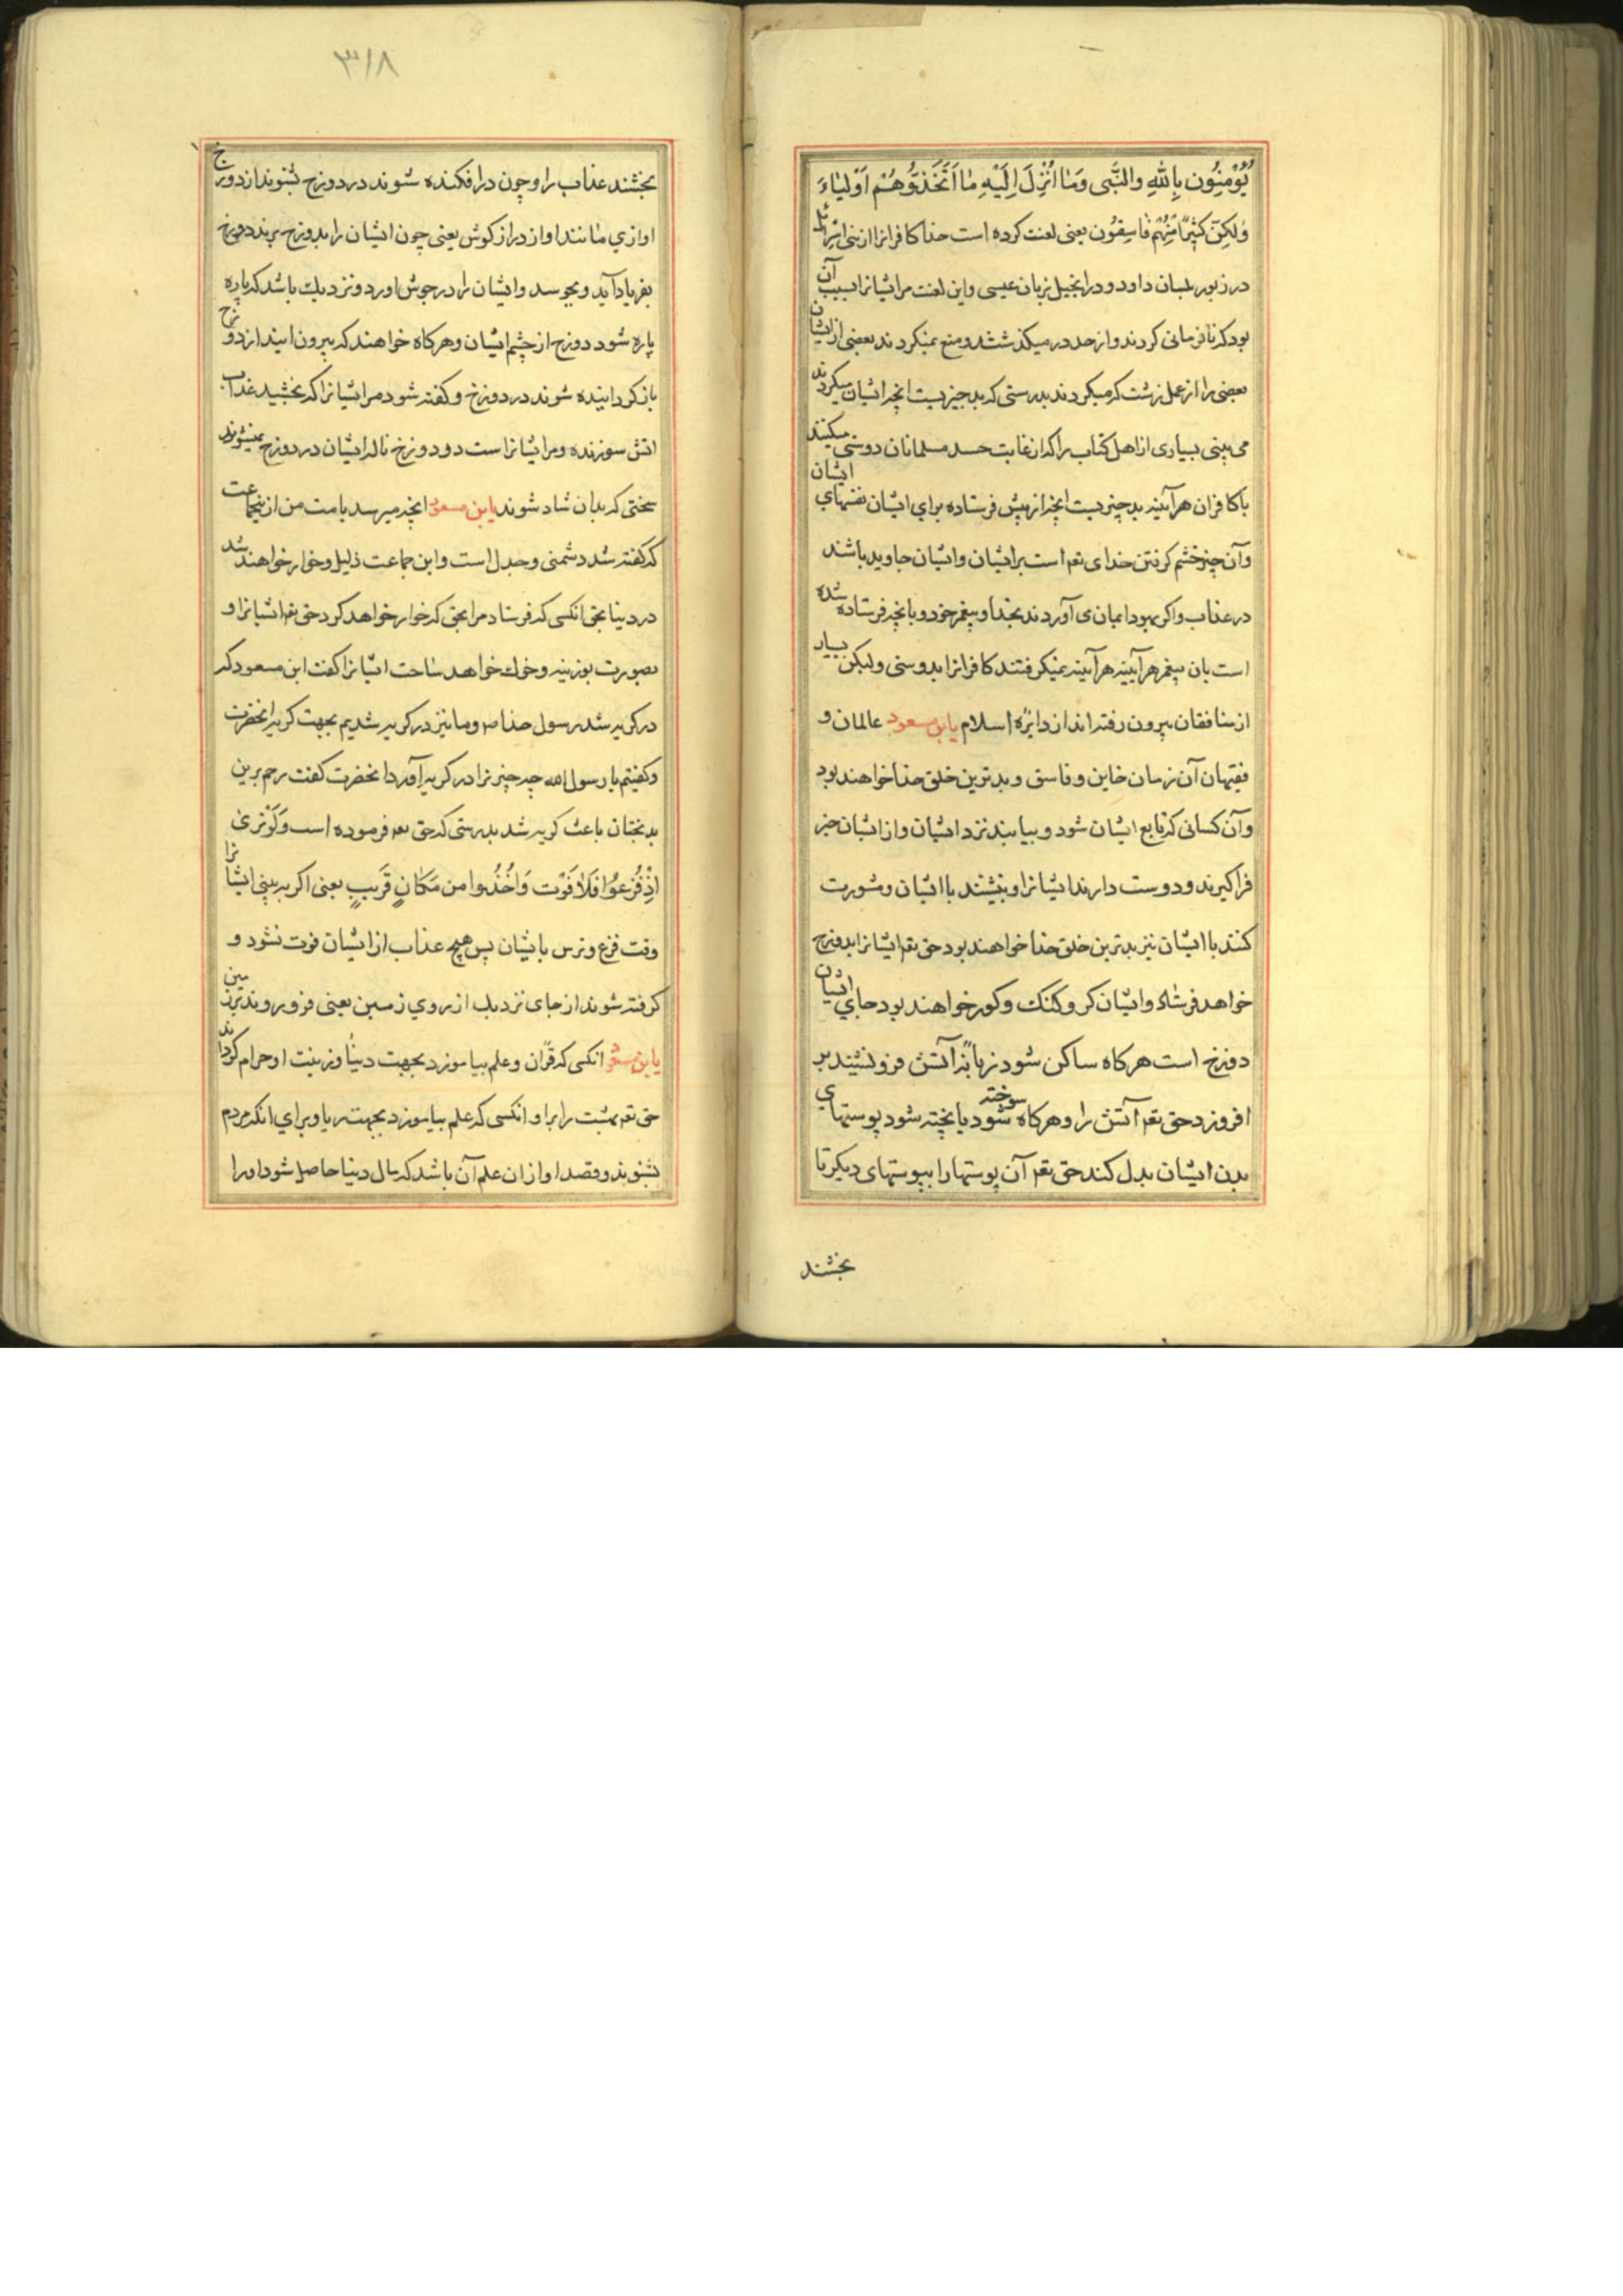 يُؤْمِنُونَ بِاللّٰهِ والنَّبِی وَمٰا اُنْزِلَ اِلَيْهِ مٰا اَتَّخَذُوهُمْ اَوْلِيٰاءَ
وَلٰكِنَّ كَثٖيرًا مِّنْهُمْ فٰاسِقُون یعنی لعنت کرده است خدا کافرانرا از بنی اسرائیل
در زبور بلسان داود و در انجیل بزبان عیسی و این لعنت مر ایشانرا بسبب آن
بود که نافرمانی کردند و از حد در میکذشتند و منع نمیکردند بعضی از ایشان
بعضی را از عمل زشت که میکردند بدرستی که بد چیزیست انچه ایشان میکردند
می بینی بسیاری از اهل کتاب را که از غایت حسد مسلمانان دوستی میکنند
با کافران هر آینه بد چیزیست انچه از پیش فرستاده برای ایشان نفسهای ایشان
وآن چیز خشم کرفتن خدای تعم است بر ایشان و ایشان جاوید باشند
در عذاب و اکر یهود ایمان می آوردند بخدا و پیغمبر خود و بانچه فرستاده شده
است بان پیغمبر هر آینه هر آینه نمیکرفتند کافرانرا بدوستی ولیکن بسیار
از منافقان بیرون رفته اند از دایرۀ اسلام یابن مسعود عالمان و
فقیهان آن زمان خاین و فاسق و بدترین خلق خدا خواهند بود
وآن کسانی که تابع ایشان شود و بیایند نزد ایشان و از ایشان خبر
فراکیرند و دوست دارند ایشانرا و بنشینند با ایشان و مشورت
کنند با ایشان نیز بدترین خلق خدا خواهند بود حق تعم ایشانرا بدوزخ
خواهد فرستاد و ایشان کر و کنک و کور خواهند بود جای ایشان
دوزخ است هرکاه ساکن شود زبانۀ آتش فرو نشیند بر
افروزد حق تعم آتش را و هرکاه سوخته شود یا پخته شود پوستهای
بدن ایشان بدل کند حق تعم آن پوستها را بپوستهای دیکر تا
بخشند
۳۱۸
بخشند عذاب را و چون در افکنده شوند در دوزخ بشنوند از دوزخ
اوازی مانند اواز دراز کوش یعنی چون ایشان را بدوزخ برند دوزخ
بفریاد آید و بجوسد و ایشان را در جوش اورد و نزدیك باشد که پاره
پاره شود دوزخ از خشم ایشان و هرکاه خواهند که بیرون ایند از دوزخ
باز کردانیده شوند در دوزخ و کفته شود مر ایشانرا که بخشید عذاب
اتش سوزنده و مر ایشانرا است در دوزخ ناله ایشان در دوزخ نمیشوند
سخنی که بدان شاد شوند یابن مسعود انچه میرسد بامت من از نجماعت
که کفته شد دشمنی و جدل است و این جماعت ذلیل و خوار خواهند شد
در دنیا بحق انکسی که فرستاد مرا بحق که خوار خواهد کرد حق تعم ایشانرا و
بصورت بوزینه و خوك خواهد ساخت ایشانرا کفت ابن مسعود که
در کریه شد رسول خدا ص و ما نیز در کریه شدیم بجهت کریه انحضرت
و کفتیم یا رسول الله چه چیز ترا در کریه آورد انحضرت کفت رحم برین
بدبختان باعث کریه شد بدرستی که حق تعم فرموده است وَلَوْتَریٰ
اِذْ فُزِعُوا فَلاٰ فَوْت وَاُخُذُوا من مَكٰانٍ قَرٖيبٍ یعنی اکر به بینی ایشانرا
وقت فزع و ترس با یشان پس هیچ عذاب از ایشان فوت نشود و
کرفته شوند از جای نزدیك از روی زمین یعنی فرو روند بزمین
یابن مسعود انکسی که قرآن و علم بیاموزد بجهت دنیا و زینت او حرام کرداند
حق تعم بهشت را برا و انکسی که علم بیاموزد بجهت ریا و برای انکه مردم
بشنوند و قصد او از ان علم آن باشد که مال دنیا حاصل شود او را